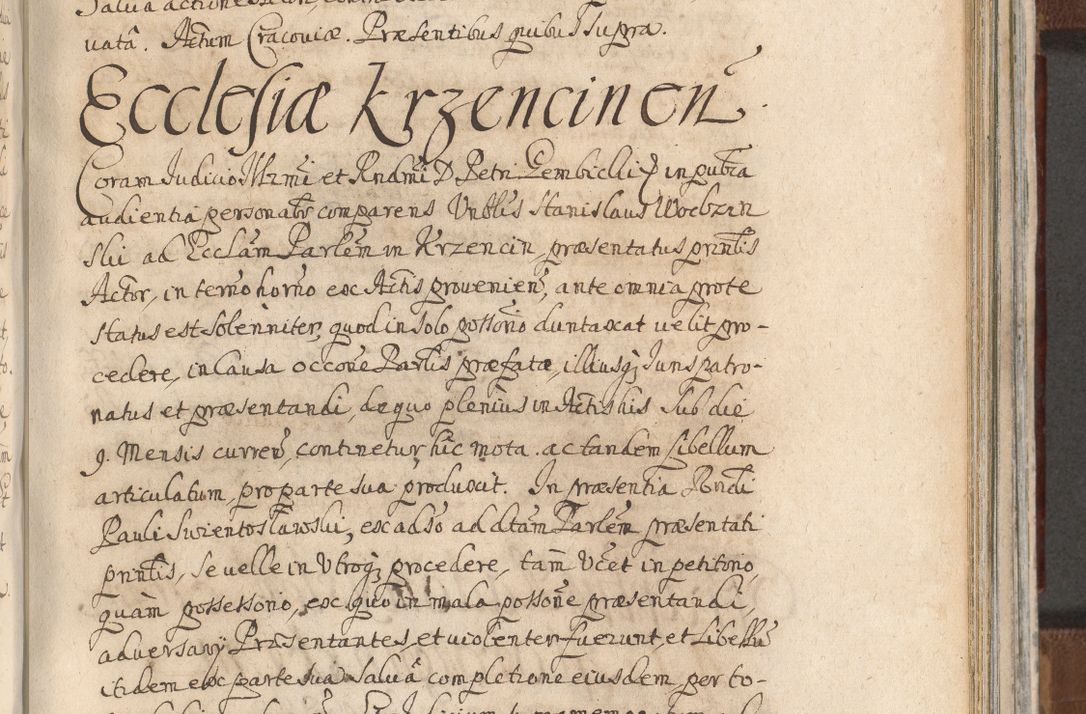 Salva actione
vatâ. Actum Cracoviæ. Præsentibus quibus supra.
Ecclesiæ Krzencinen̄
Coram Judicio Illrmi et Rndmi D Petri Gembicki in pubca
audientia personalr comparens Vnblis Stanislaus Wocbzin
skii ad Ecclam Parlem in Krzencin, præsentatus prīntis
Actor, in termo horno ex Actis provenien, ante omnia prote
status est solenniter, quod in solo possorio duntaxat velit pro-
cedere, in causa occone Parlis præfatæ, illiusq; Juris patro-
natus et præsentandi, de quo plenius in Actis his sub die
9. Mensis curren, continetur, hîc mota. ac tandem Libellum
articulatum, pro parte sua produxit. In præsentia Rondi
Pauli Swientoslawskii, ex adso ad dtam Parlem præsentati
printis, se velle in Vtroq; procedere, tam Vcet in petitorio,
quàm possessorio, ex quo in mala possone præsentandi,
adversarij Præsentantes, et violenter fuerunt, et Libellū
itidem ex parte sua salvâ completione eiusdem, per to-